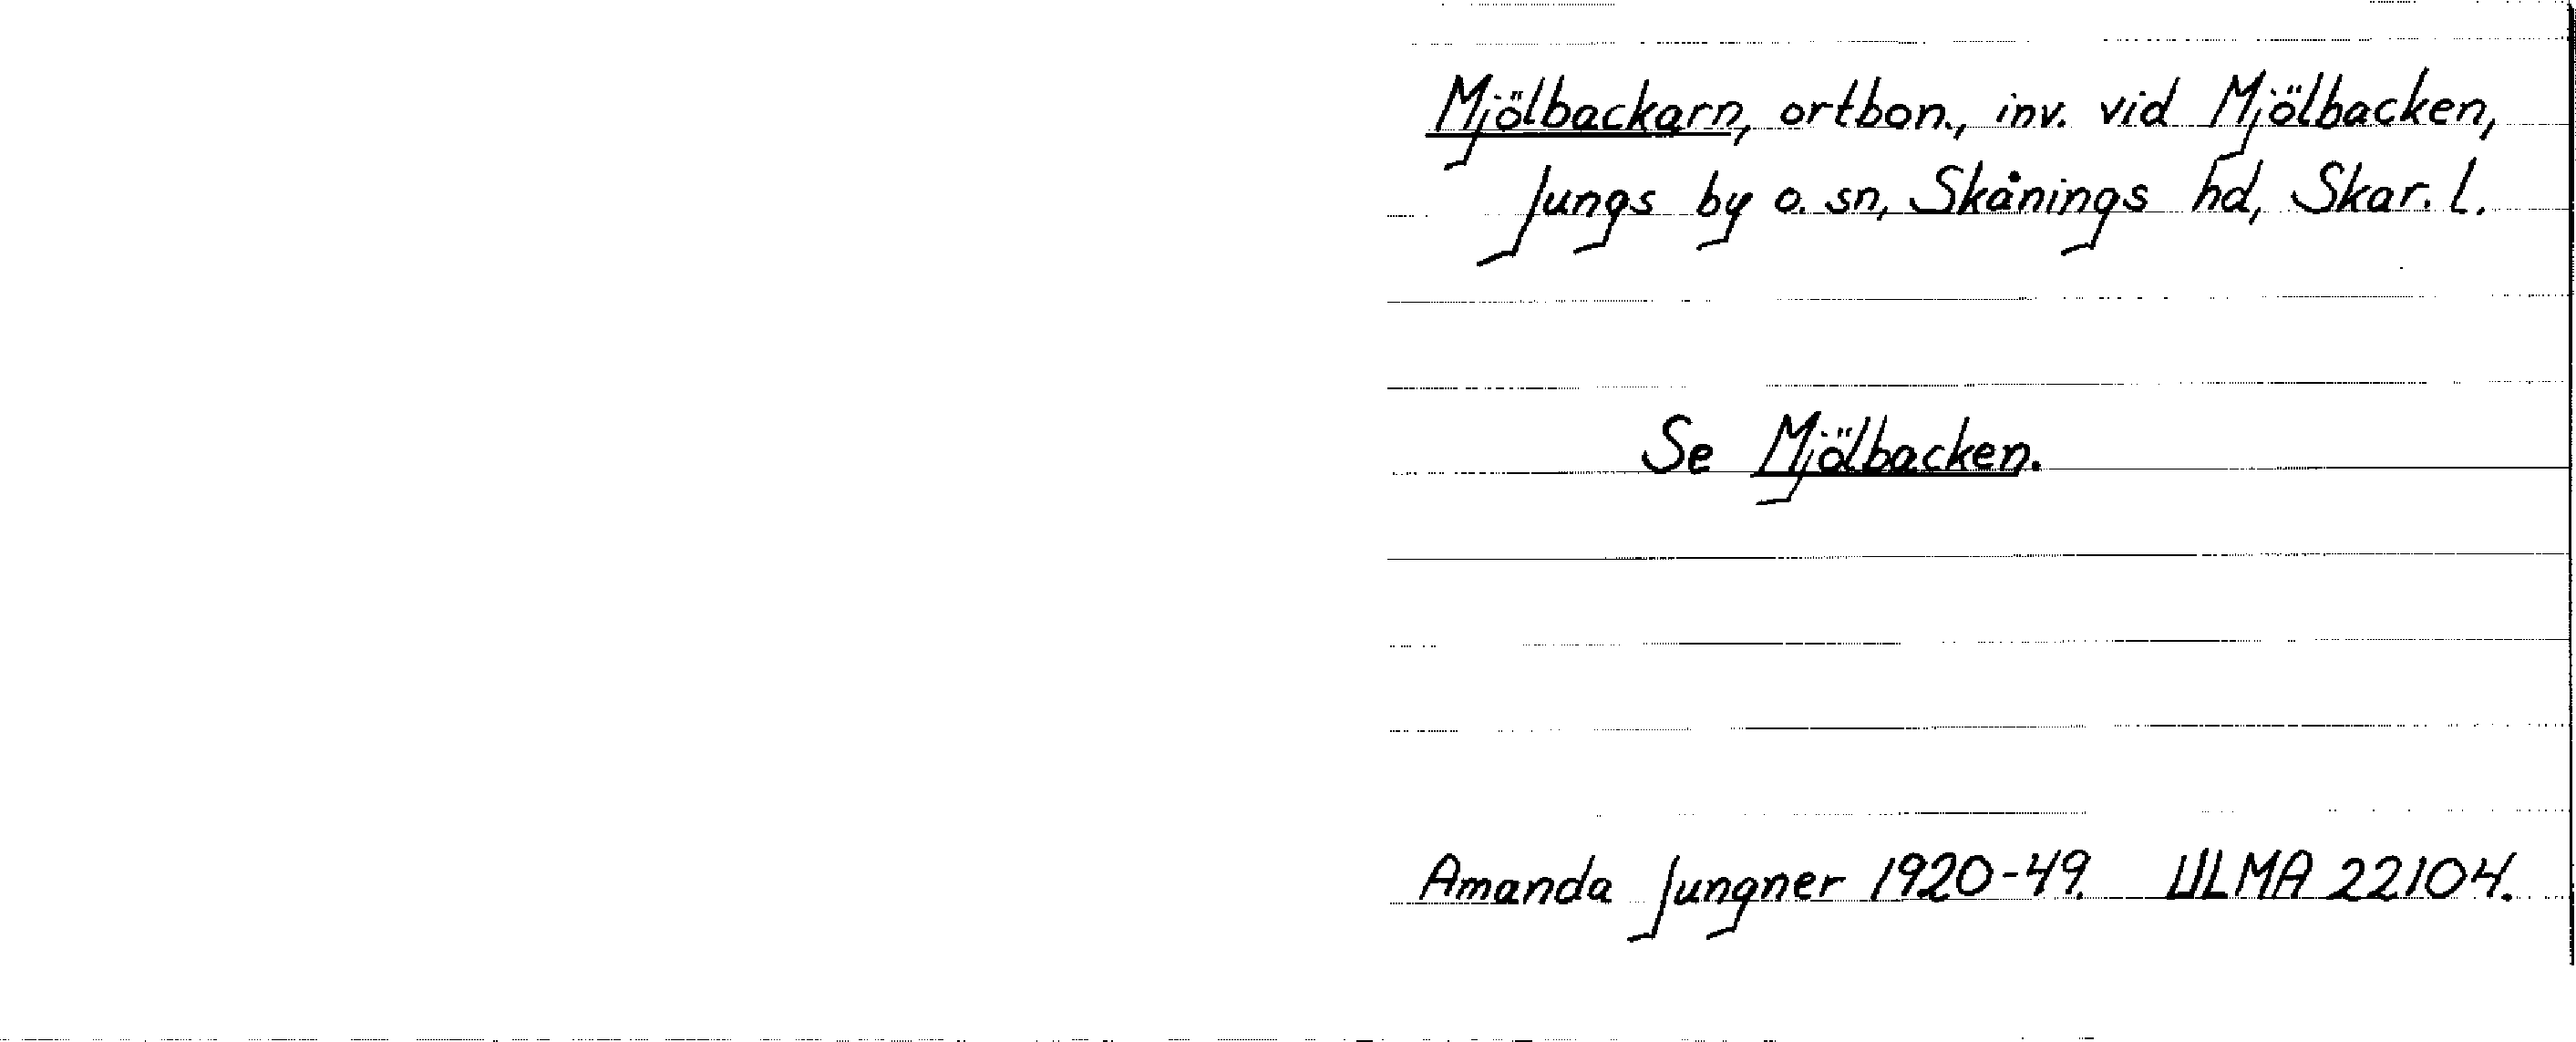 Mjölbackarn, ortbon., inv. vid Mjölbacken,
Jungs by o. sn, Skånings hd, Skar. l.
Se Mjölbacken.
Amanda Jungner 1920-49. ULMA 22104.